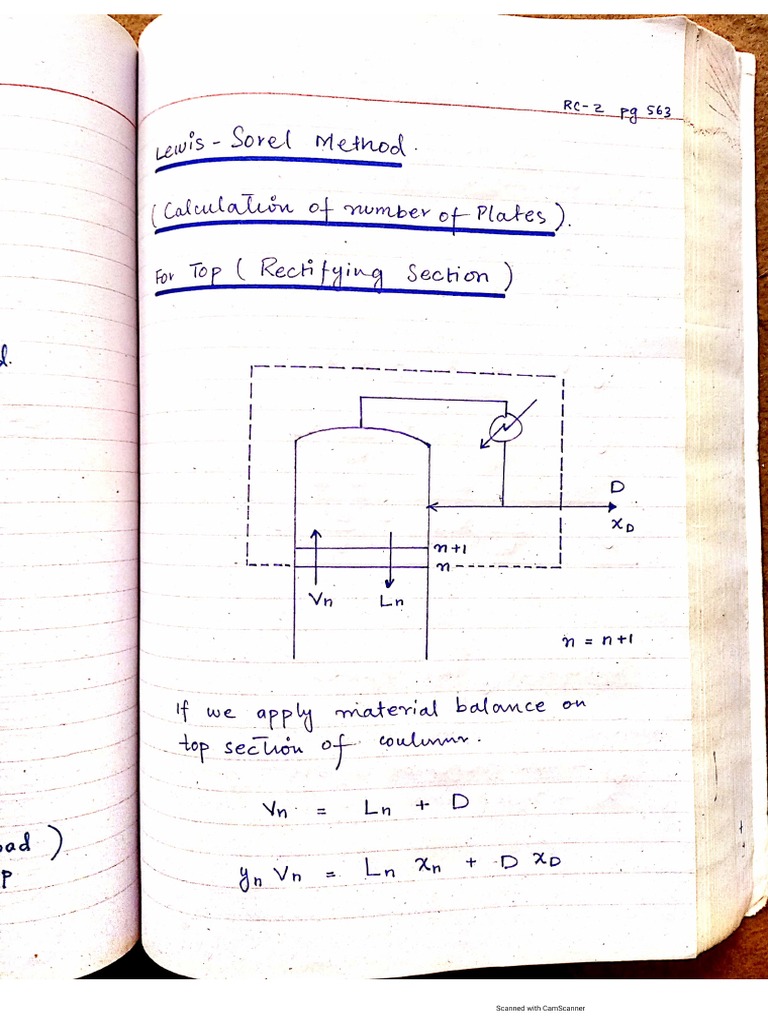 RC-2 pg 563
Lewis - Sorel Method.
(Calculation of number of Plates).
For Top ( Rectifying Section )
d.
D
xD
n+1
n
Vn
Ln
n = n+1
If we apply material balance on
top section of coulumn.
Vn = Ln + D
oad )
yn Vn = Ln xn + D xD
P
Scanned with CamScanner